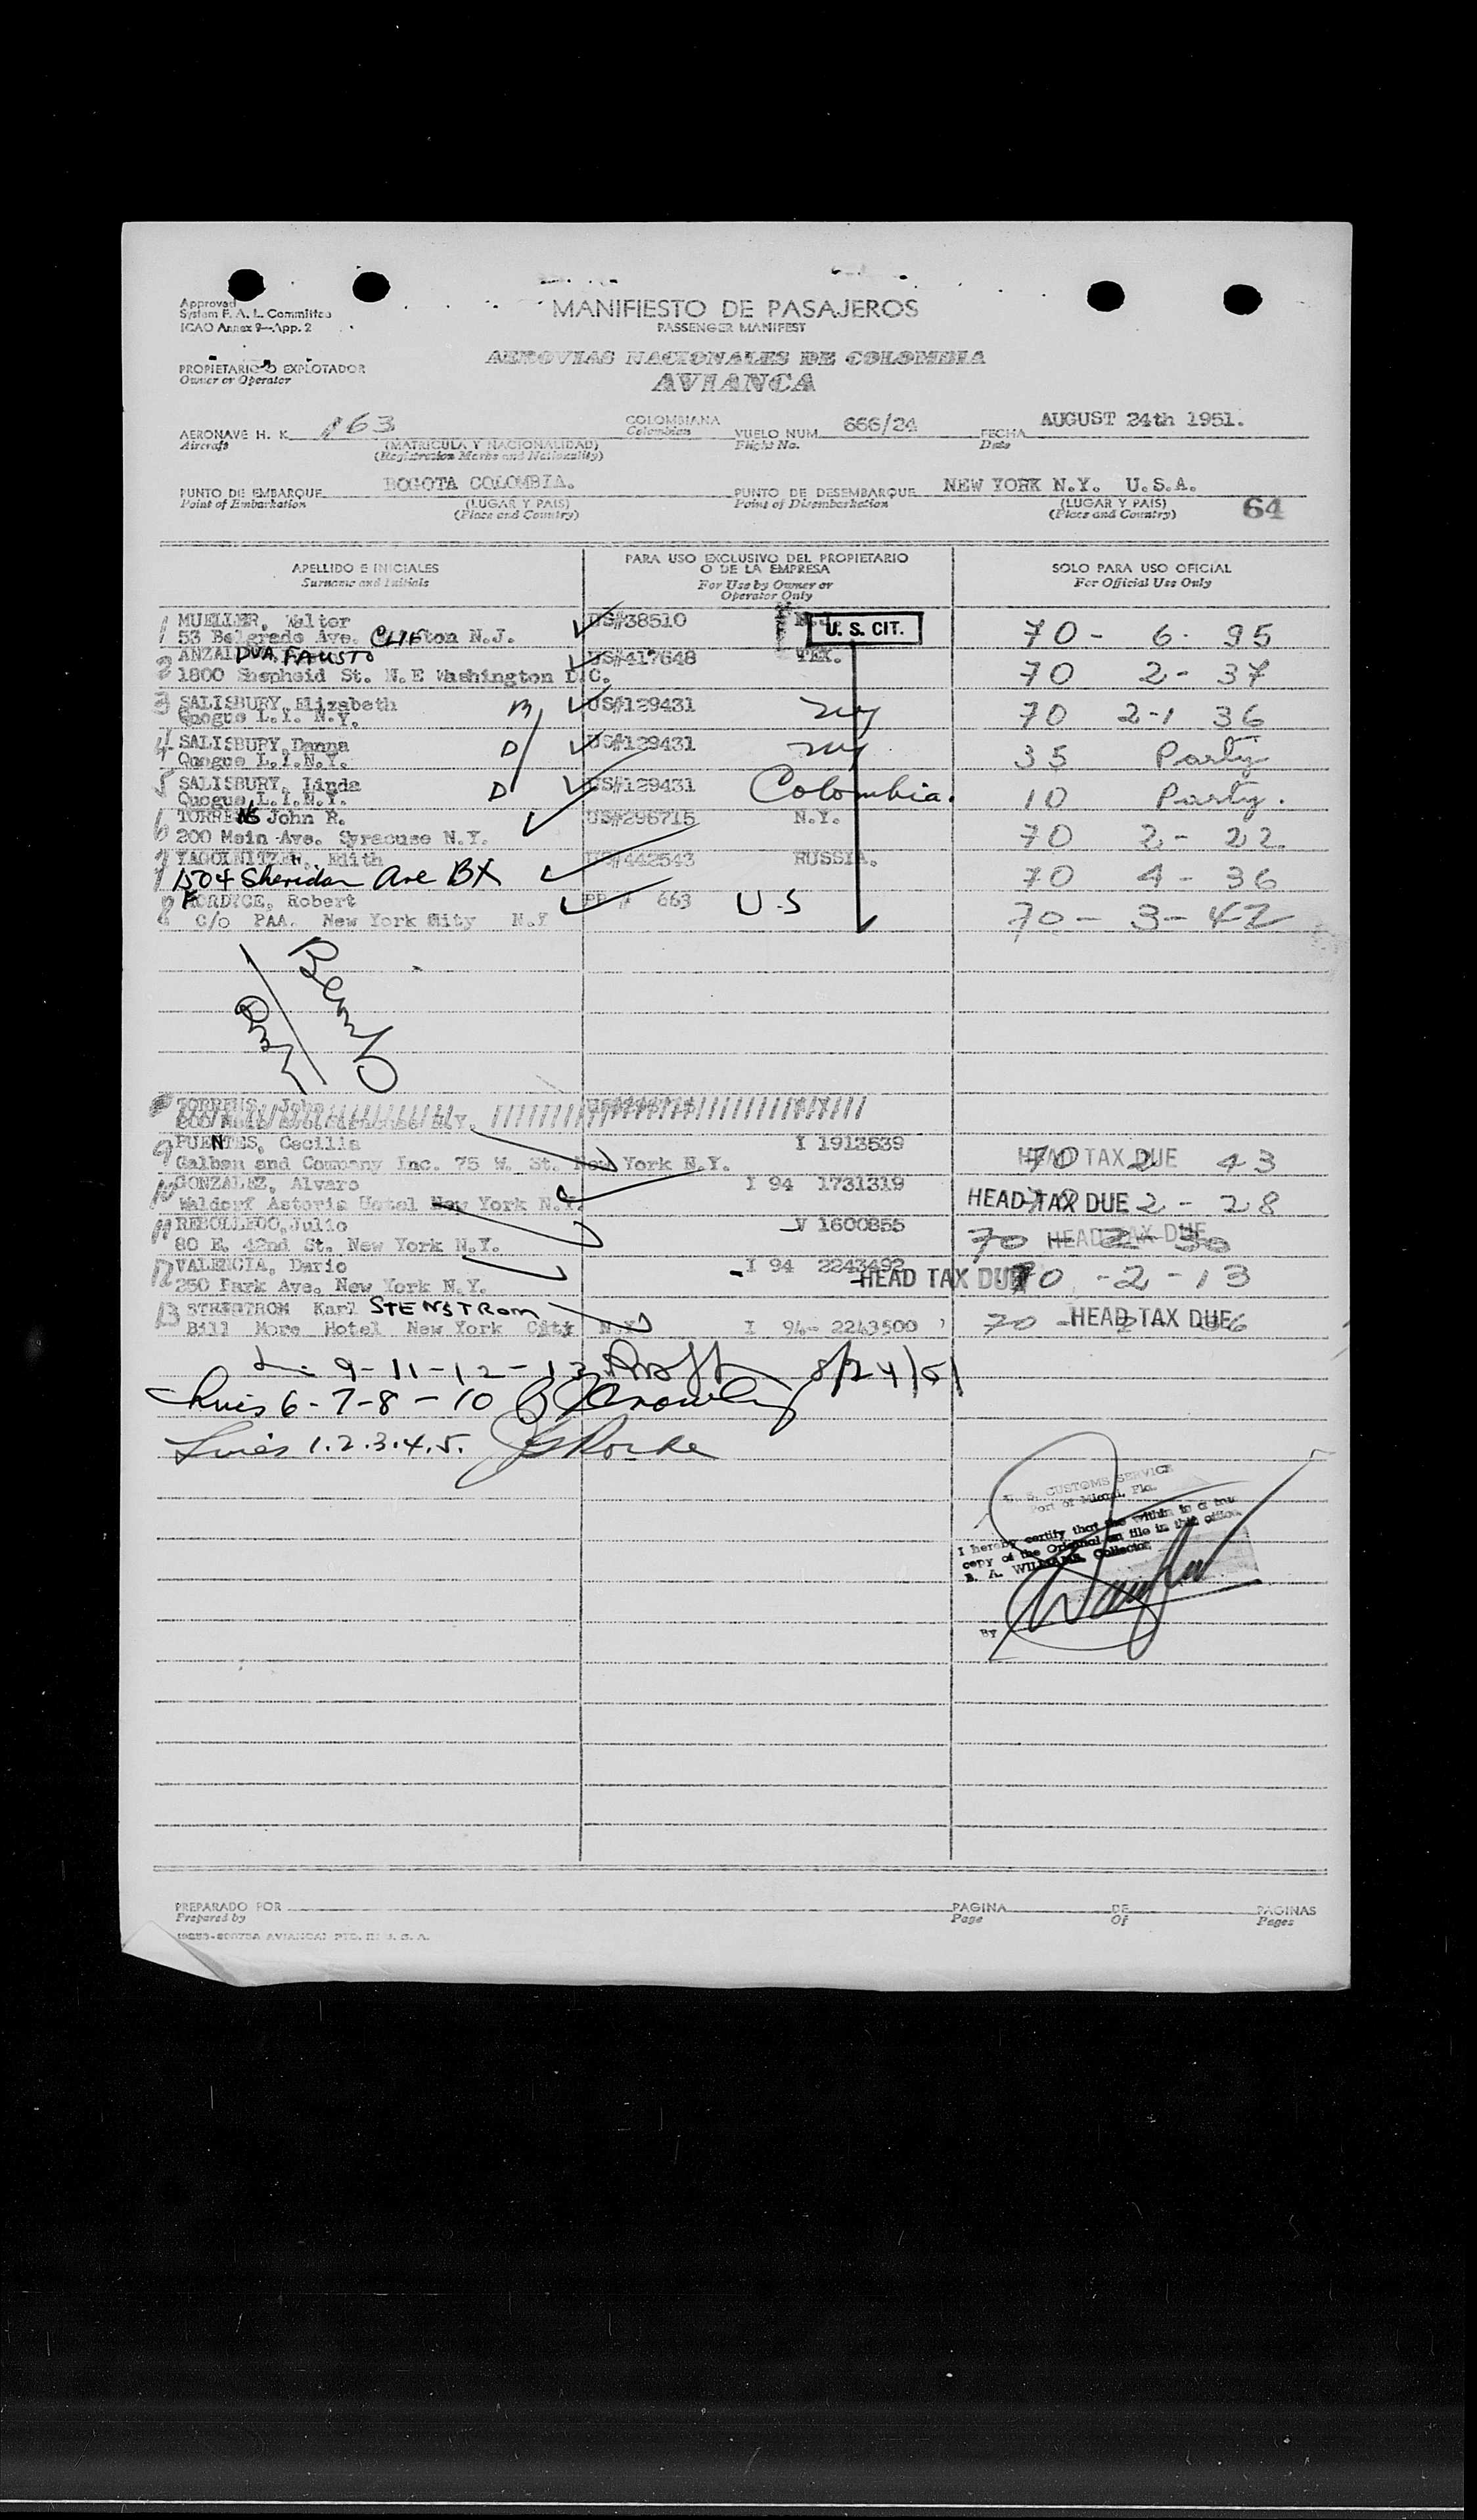 Approved
System F. A. L. Committee
ICAO Annex 9—App. 2
MANIFIESTO DE PASAJEROS
PASSENGER MANIFEST
PROPIETARIO O EXPLOTADOR
Owner or Operator
AEROVIAS NACIONALES DE COLOMBIA
AVIANCA
AERONAVE H. K. 163 COLOMBIANA VUELO NUM. 666/24 FECHA AUGUST 24th 1951.
Aircraft (MATRICULA Y NACIONALIDAD) Colombian Flight No. Date
(Registration Marks and Nationality)
PUNTO DE EMBARQUE BOGOTA COLOMBIA. PUNTO DE DESEMBARQUE NEW YORK N.Y. U.S.A.
Point of Embarkation (LUGAR Y PAIS) Point of Disembarkation (LUGAR Y PAIS) 64
(Place and Country) (Place and Country)
APELLIDO E INICIALES PARA USO EXCLUSIVO DEL PROPIETARIO SOLO PARA USO OFICIAL
Surname and Initials O DE LA EMPRESA For Official Use Only
For Use by Owner or
Operator Only
1 MUELLER, Walter US#38510 U. S. CIT. 70 - 6 - 95
53 Belgrade Ave. CLIFton N.J.
2 ANZALDUA FAUSTO US#417648 TEX. 70 2 - 37
1800 Shepheid St. N.E Washington D.C.
3 SALISBURY, Elizabeth M US#129431 NY 70 2-1 36
Quogue L.I. N.Y.
4 SALISBURY, Danna D US#129431 NY 35 Party
Quogue L.I.N.Y.
5 SALISBURY, Linda D US#129431 Colombia. 10 Party.
Quogue L.I.N.Y.
6 TORRENS John R. US#296715 N.Y. 70 2 - 22
200 Main Ave. Syracuse N.Y.
7 Edith US#442543 RUSSIA. 70 4 - 36
1504 Sheridan Ave BX
8 FORDYCE, Robert PP # 663 U.S 70 - 3 - 42
C/o PAA. New York City N.Y
TORRENS, John
9 FUENTES, Cecilia I 1913539 HEAD TAX DUE 70 2 43
Galban and Company Inc. 75 W. St. New York N.Y.
10 GONZALEZ, Alvaro I 94 1731319 HEAD TAX DUE 2 - 28
Waldorf Astoria Hotel New York N.Y.
11 REBOLLEDO, Julio V 1600855 70 HEAD TAX DUE 2 30
80 E. 42nd St. New York N.Y.
12 VALENCIA, Dario I 94 2243492 HEAD TAX DUE 70 - 2 - 13
250 Park Ave. New York N.Y.
13 Karl STENSTROM I 94- 2243500 70 - HEAD TAX DUE
Bill More Hotel New York City N.Y
9-11-12-13 8/24/51
Lines 6-7-8-10
Lines 1.2.3.4.5.
U. S. CUSTOMS SERVICE
Port of Miami, Fla.
I hereby certify that the within is a true
copy of the Original on file in this office.
E. A. WILLIAMS, Collector
By
PREPARADO POR PAGINA DE PAGINAS
Prepared by Page Of Pages